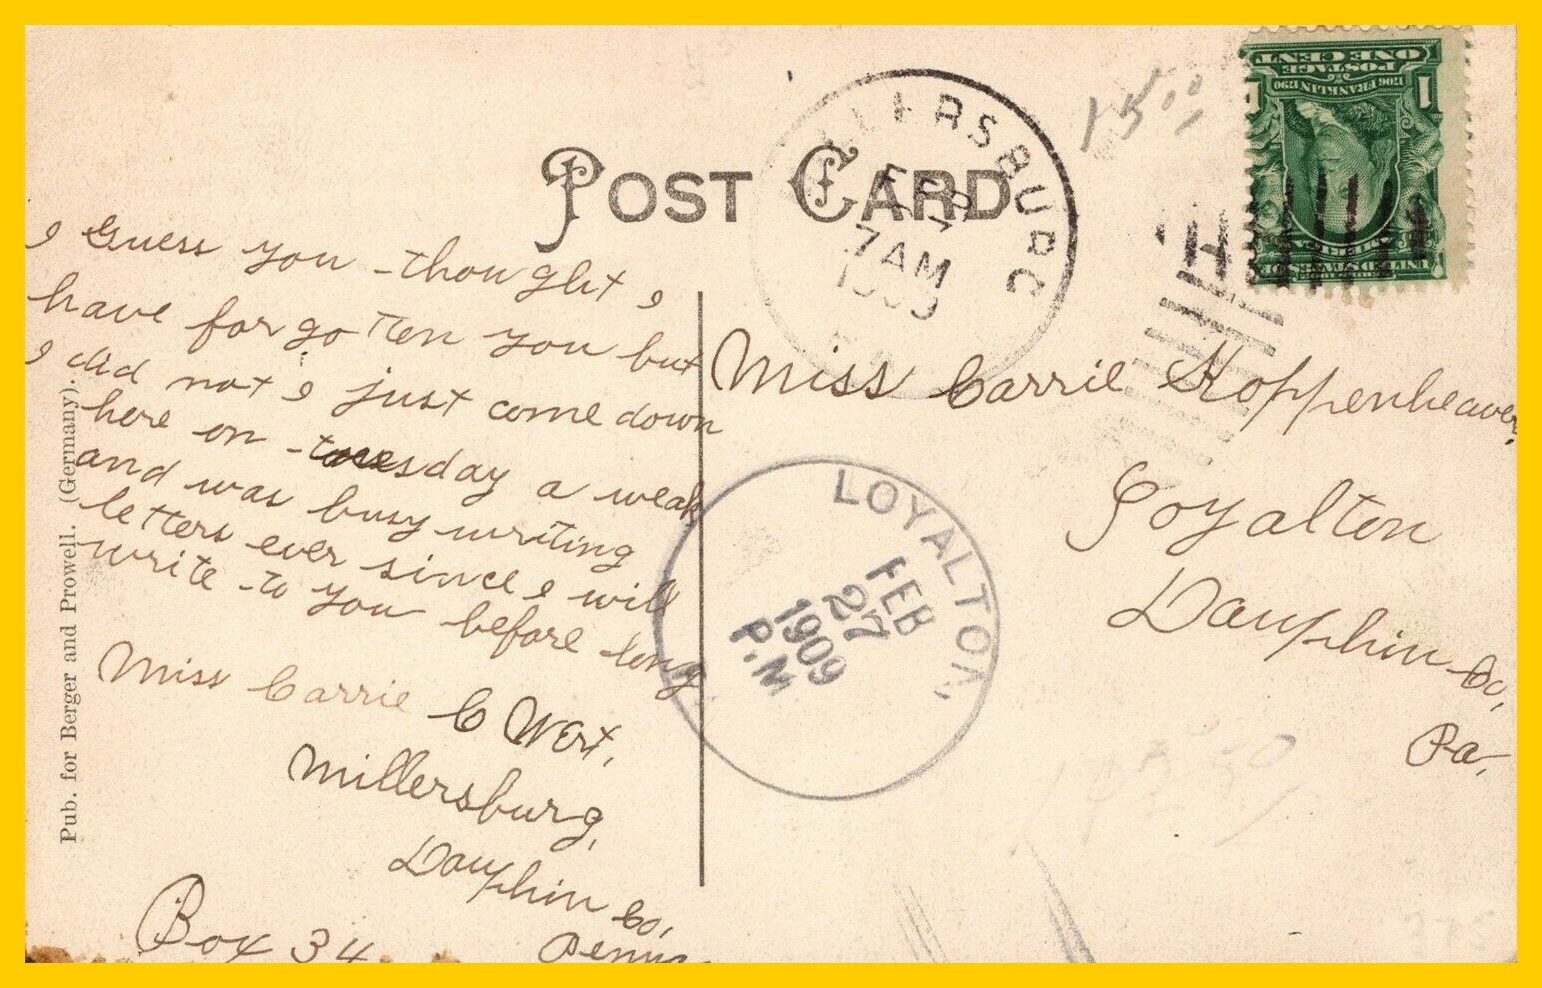 POST CARD
I Guess you thought I
have forgotten you but
I did not I just come down
here on tuesday a weak
and was busy writing
letters ever since I will
write to you before long
Miss Carrie C Wert,
Millersburg,
Dauphin Co,
Penna
Box 34
Pub. for Berger and Prowell. (Germany).
MILLERSBURG
FEB
7AM
1909
POSTAGE
ONE CENT
1706 FRANKLIN 1790
1
UNITED STATES OF AMERICA
Miss Carrie Hoppenheaver,
Loyalton
Dauphin Co,
Pa,
LOYALTON,
FEB
27
1909
P.M
275